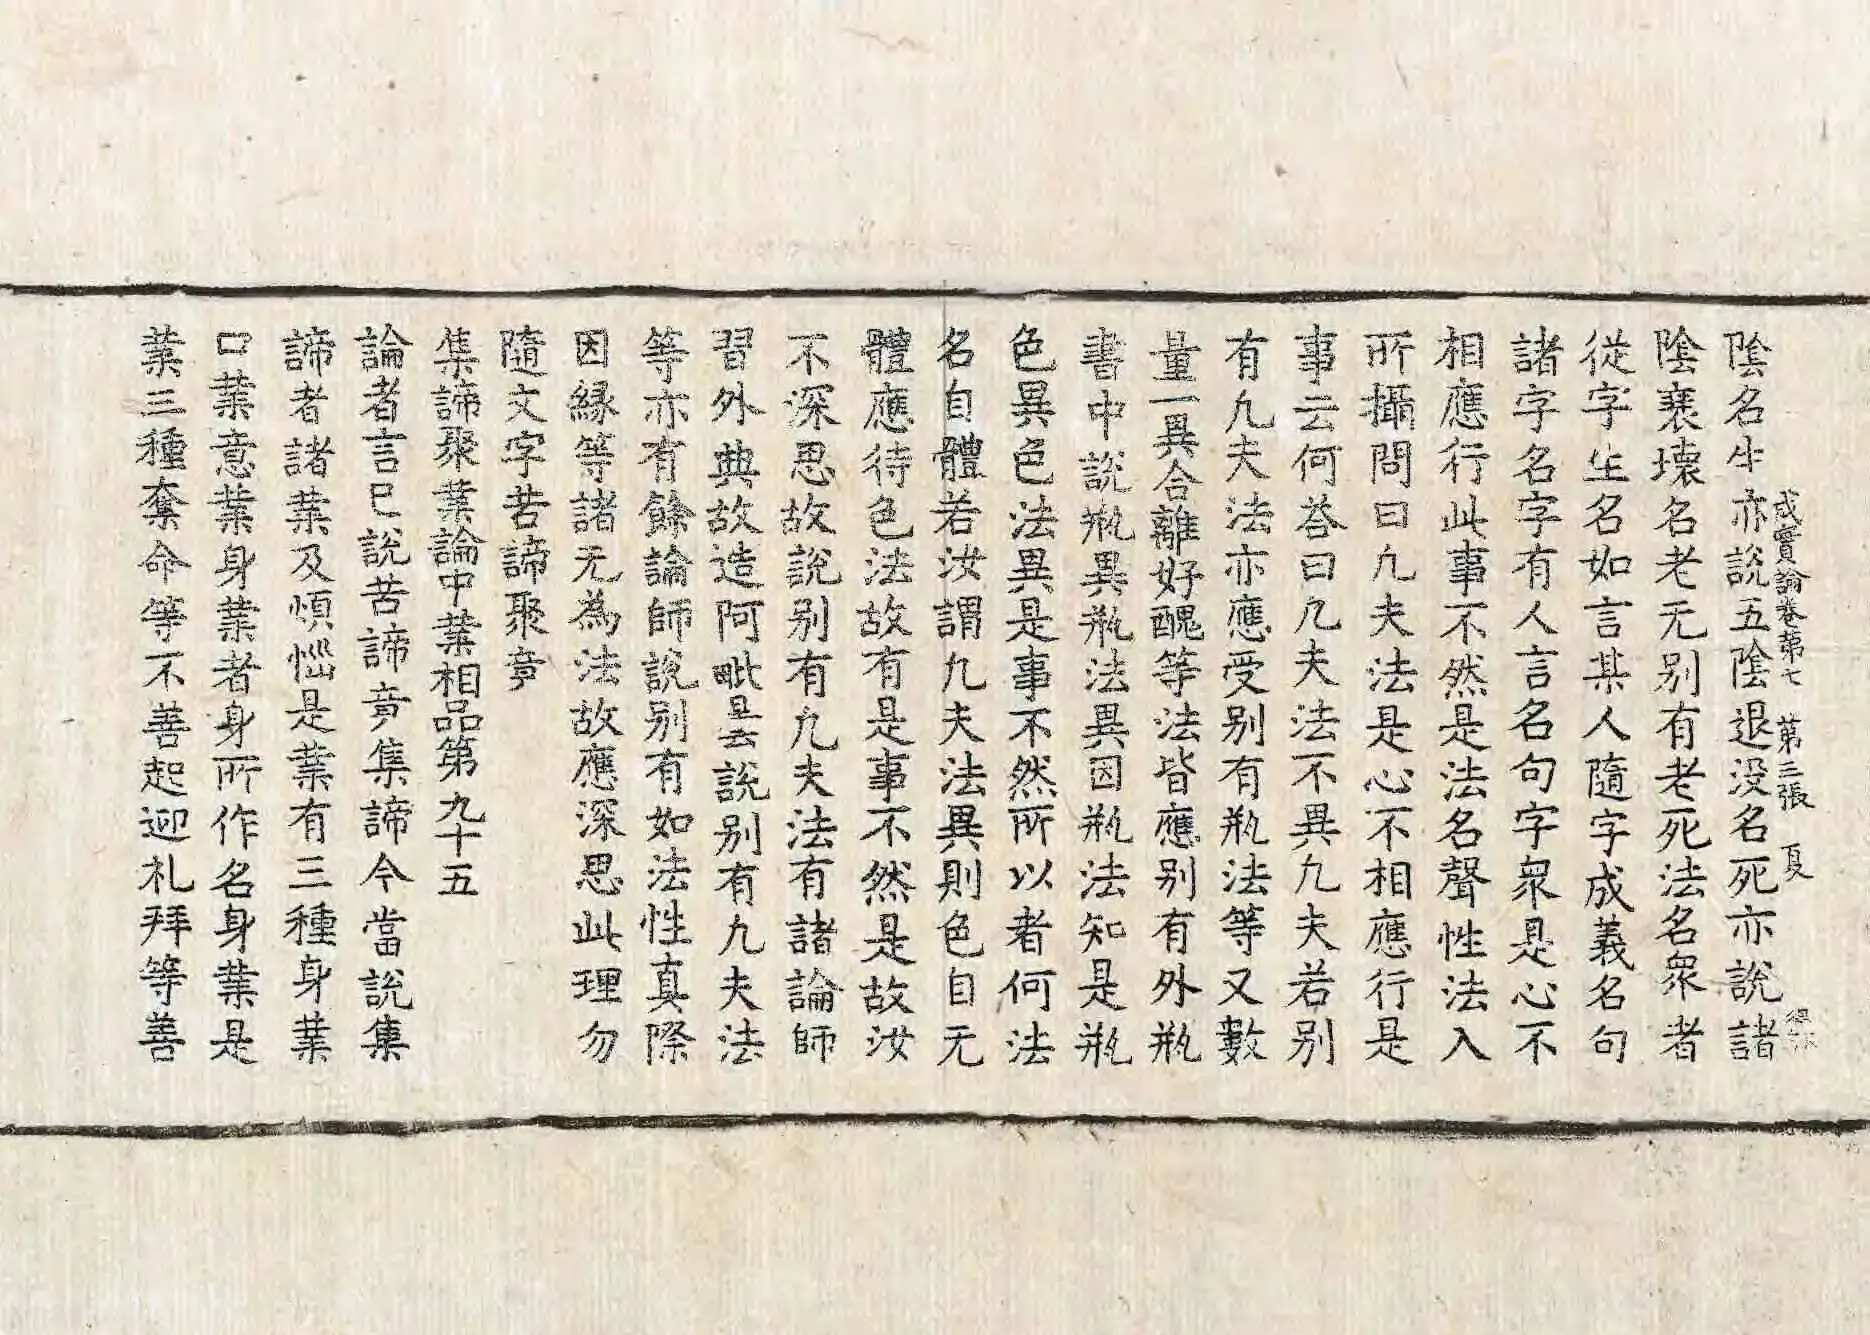 成實論卷第七 第三張 夏
陰名生亦說五陰退没名死亦說諸
陰衰壞名老无别有老死法名衆者
從字生名如言某人隨字成義名句
諸字名字有人言名句字衆是心不
相應行此事不然是法名聲性法入
所攝問曰凢夫法是心不相應行是
事云何荅曰凢夫法不異凢夫若别
有凢夫法亦應受别有瓶法等又數
量一異合離好醜等法皆應别有外瓶
書中說瓶異瓶法異因瓶法知是瓶
色異色法異是事不然所以者何法
名自體若汝謂凢夫法異則色自无
體應待色法故有是事不然是故汝
不深思故說别有凢夫法有諸論師
習外典故造阿毗曇說别有凢夫法
等亦有餘論師說别有如法性真際
因緣等諸无為法故應深思此理勿
隨文字苦諦聚竟
集諦聚業論中業相品第九十五
論者言已說苦諦竟集諦今當說集
諦者諸業及煩惱是業有三種身業
口業意業身業者身所作名身業是
業三種奪命等不善起迎礼拜等善